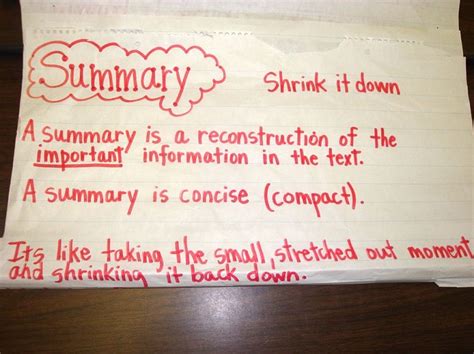 Summary Shrink it down
A summary is a reconstruction of the
important information in the text.
A summary is concise (compact).
Its like taking the small, stretched out moment
and shrinking it back down.